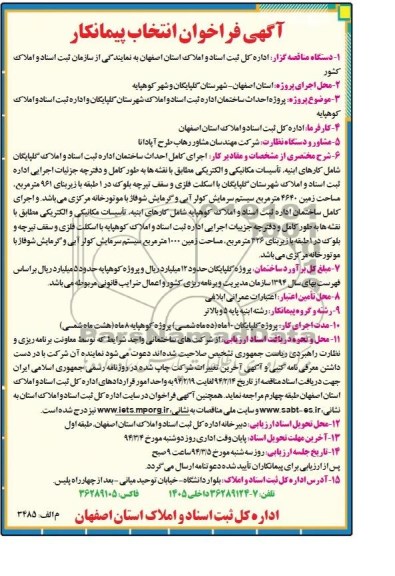 آگهی فراخوان انتخاب پیمانکار
۱-دستگاه مناقصه گزار: اداره کل ثبت اسناد و املاک استان اصفهان به نمایندگی از سازمان ثبت اسناد و املاک
کشور
۲-محل اجرای پروژه: استان اصفهان - شهرستان گلپایگان و شهر کوهپایه
۳-موضوع پروژه: پروژه احداث ساختمان اداره ثبت اسناد و املاک شهرستان گلپایگان و اداره ثبت اسناد و املاک
کوهپایه
۴-کارفرما: اداره کل ثبت اسناد و املاک استان اصفهان
۵-مشاور و دستگاه نظارت: شرکت مهندسان مشاور رهاب طرح آپادانا
۶-شرح مختصری از مشخصات و مقادیر کار: اجرای کامل احداث ساختمان اداره ثبت اسناد و املاک گلپایگان
شامل کارهای ابنیه، تأسیسات مکانیکی و الکتریکی مطابق با نقشه ها به طور کامل و دفترچه جزئیات اجرایی اداره
ثبت اسناد و املاک شهرستان گلپایگان با اسکلت فلزی و سقف تیرچه بلوک در ۱ طبقه با زیربنای ۹۶۱ مترمربع،
مساحت زمین ۴۶۴۰ مترمربع سیستم سرمایش کولر آبی و گرمایش شوفاژ با موتورخانه مرکزی می باشد. و اجرای
کامل ساختمان اداره ثبت اسناد و املاک کوهپایه شامل کارهای ابنیه، تأسیسات مکانیکی و الکتریکی مطابق با
نقشه ها به طور کامل و دفترچه جزییات اجرایی اداره ثبت اسناد و املاک کوهپایه با اسکلت فلزی و سقف تیرچه و
بلوک در ۱ طبقه با زیربنای ۴۲۶ مترمربع، مساحت زمین ۱۰۰۰ مترمربع سیستم سرمایش کولر آبی و گرمایش شوفاژ با
موتورخانه مرکزی می باشد.
۷-مبلغ کل برآورد ساختمان: پروژه گلپایگان حدود ۱۲ میلیارد ریال و پروژه کوهپایه حدود ۵ میلیارد ریال بر اساس
فهرست بهای سال ۱۳۹۴ سازمان مدیریت و برنامه ریزی کشور و اعمال ضرایب قانونی مربوطه می باشد.
۸-محل تأمین اعتبار: اعتبارات عمرانی ابلاغی
۹-رشته و گروه پیمانکار: رشته ابنیه پایه ۵ و بالاتر
۱۰-مدت اجرای کار: پروژه گلپایگان ۱۰ماه (ده ماه شمسی) پروژه کوهپایه ۸ ماه (هشت ماه شمسی)
۱۱-محل و نحوه دریافت اسناد ارزیابی: از شرکت های ساختمانی واجد شرایط که توسط معاونت برنامه ریزی و
نظارت راهبردی ریاست جمهوری تشخیص صلاحیت شده اند دعوت می شود نماینده آن شرکت با در دست
داشتن معرفی نامه کتبی و آگهی آخرین تغییرات شرکت چاپ شده در روزنامه رسمی جمهوری اسلامی ایران
جهت دریافت اسناد مناقصه از تاریخ ۹۴/۲/۱۴ لغایت ۹۴/۲/۱۹ به واحد امور قراردادهای اداره کل ثبت اسناد و املاک
استان اصفهان طبقه چهارم مراجعه نماید. همچنین آگهی فراخوان در سایت اداره کل ثبت اسناد و املاک استان به
نشانی: www.sabt-es.ir و سایت ملی مناقصات به نشانی: www.iets.mporg.ir نیز درج شده است.
۱۲-محل تحویل اسناد ارزیابی: دبیرخانه اداره کل ثبت اسناد و املاک استان اصفهان، طبقه اول
۱۳-آخرین مهلت تحویل اسناد: پایان وقت اداری روز دوشنبه مورخ ۹۴/۳/۴
۱۴-تاریخ جلسه ارزیابی: روز سه شنبه مورخ ۹۴/۳/۵ ساعت ۹ صبح
پس از ارزیابی برای پیمانکاران تأیید شده دعوتنامه ارسال می گردد.
۱۵-آدرس اداره کل ثبت اسناد و املاک: بلوار دانشگاه - خیابان توحید میانی - بعد از چهارراه پلیس.
تلفن: ۷-۳۶۲۸۹۱۲۴ داخلی ۱۴۰۵ فاکس: ۳۶۲۸۹۱۰۵
اداره کل ثبت اسناد و املاک استان اصفهان
م الف: ۳۴۸۵